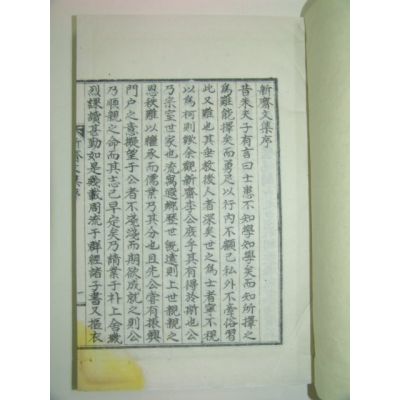 新齋文集序
昔朱夫子有言曰士患不知學知學矣而知所擇之
爲難能擇矣而勇足以行內不顧己私外不牽俗習
此又難也其垂敎後人者深矣世之爲士者寧不視
爲柯則歟余觀新齋李公庶乎其有得於斯也公
乃宗室世家也流寓遐鄕歷世旣遠則上世親親之
恩秩難以繼承而儒業乃其分也且先公嘗有振興
門戶之意擬望于公者不淺淺而期欲成就之則公
乃順親之命而其志己早定矣乃請業于朴上舍璣
烈課讀甚勤如是幾載周流于群經諸子書又摳衣
新齋文集序
一